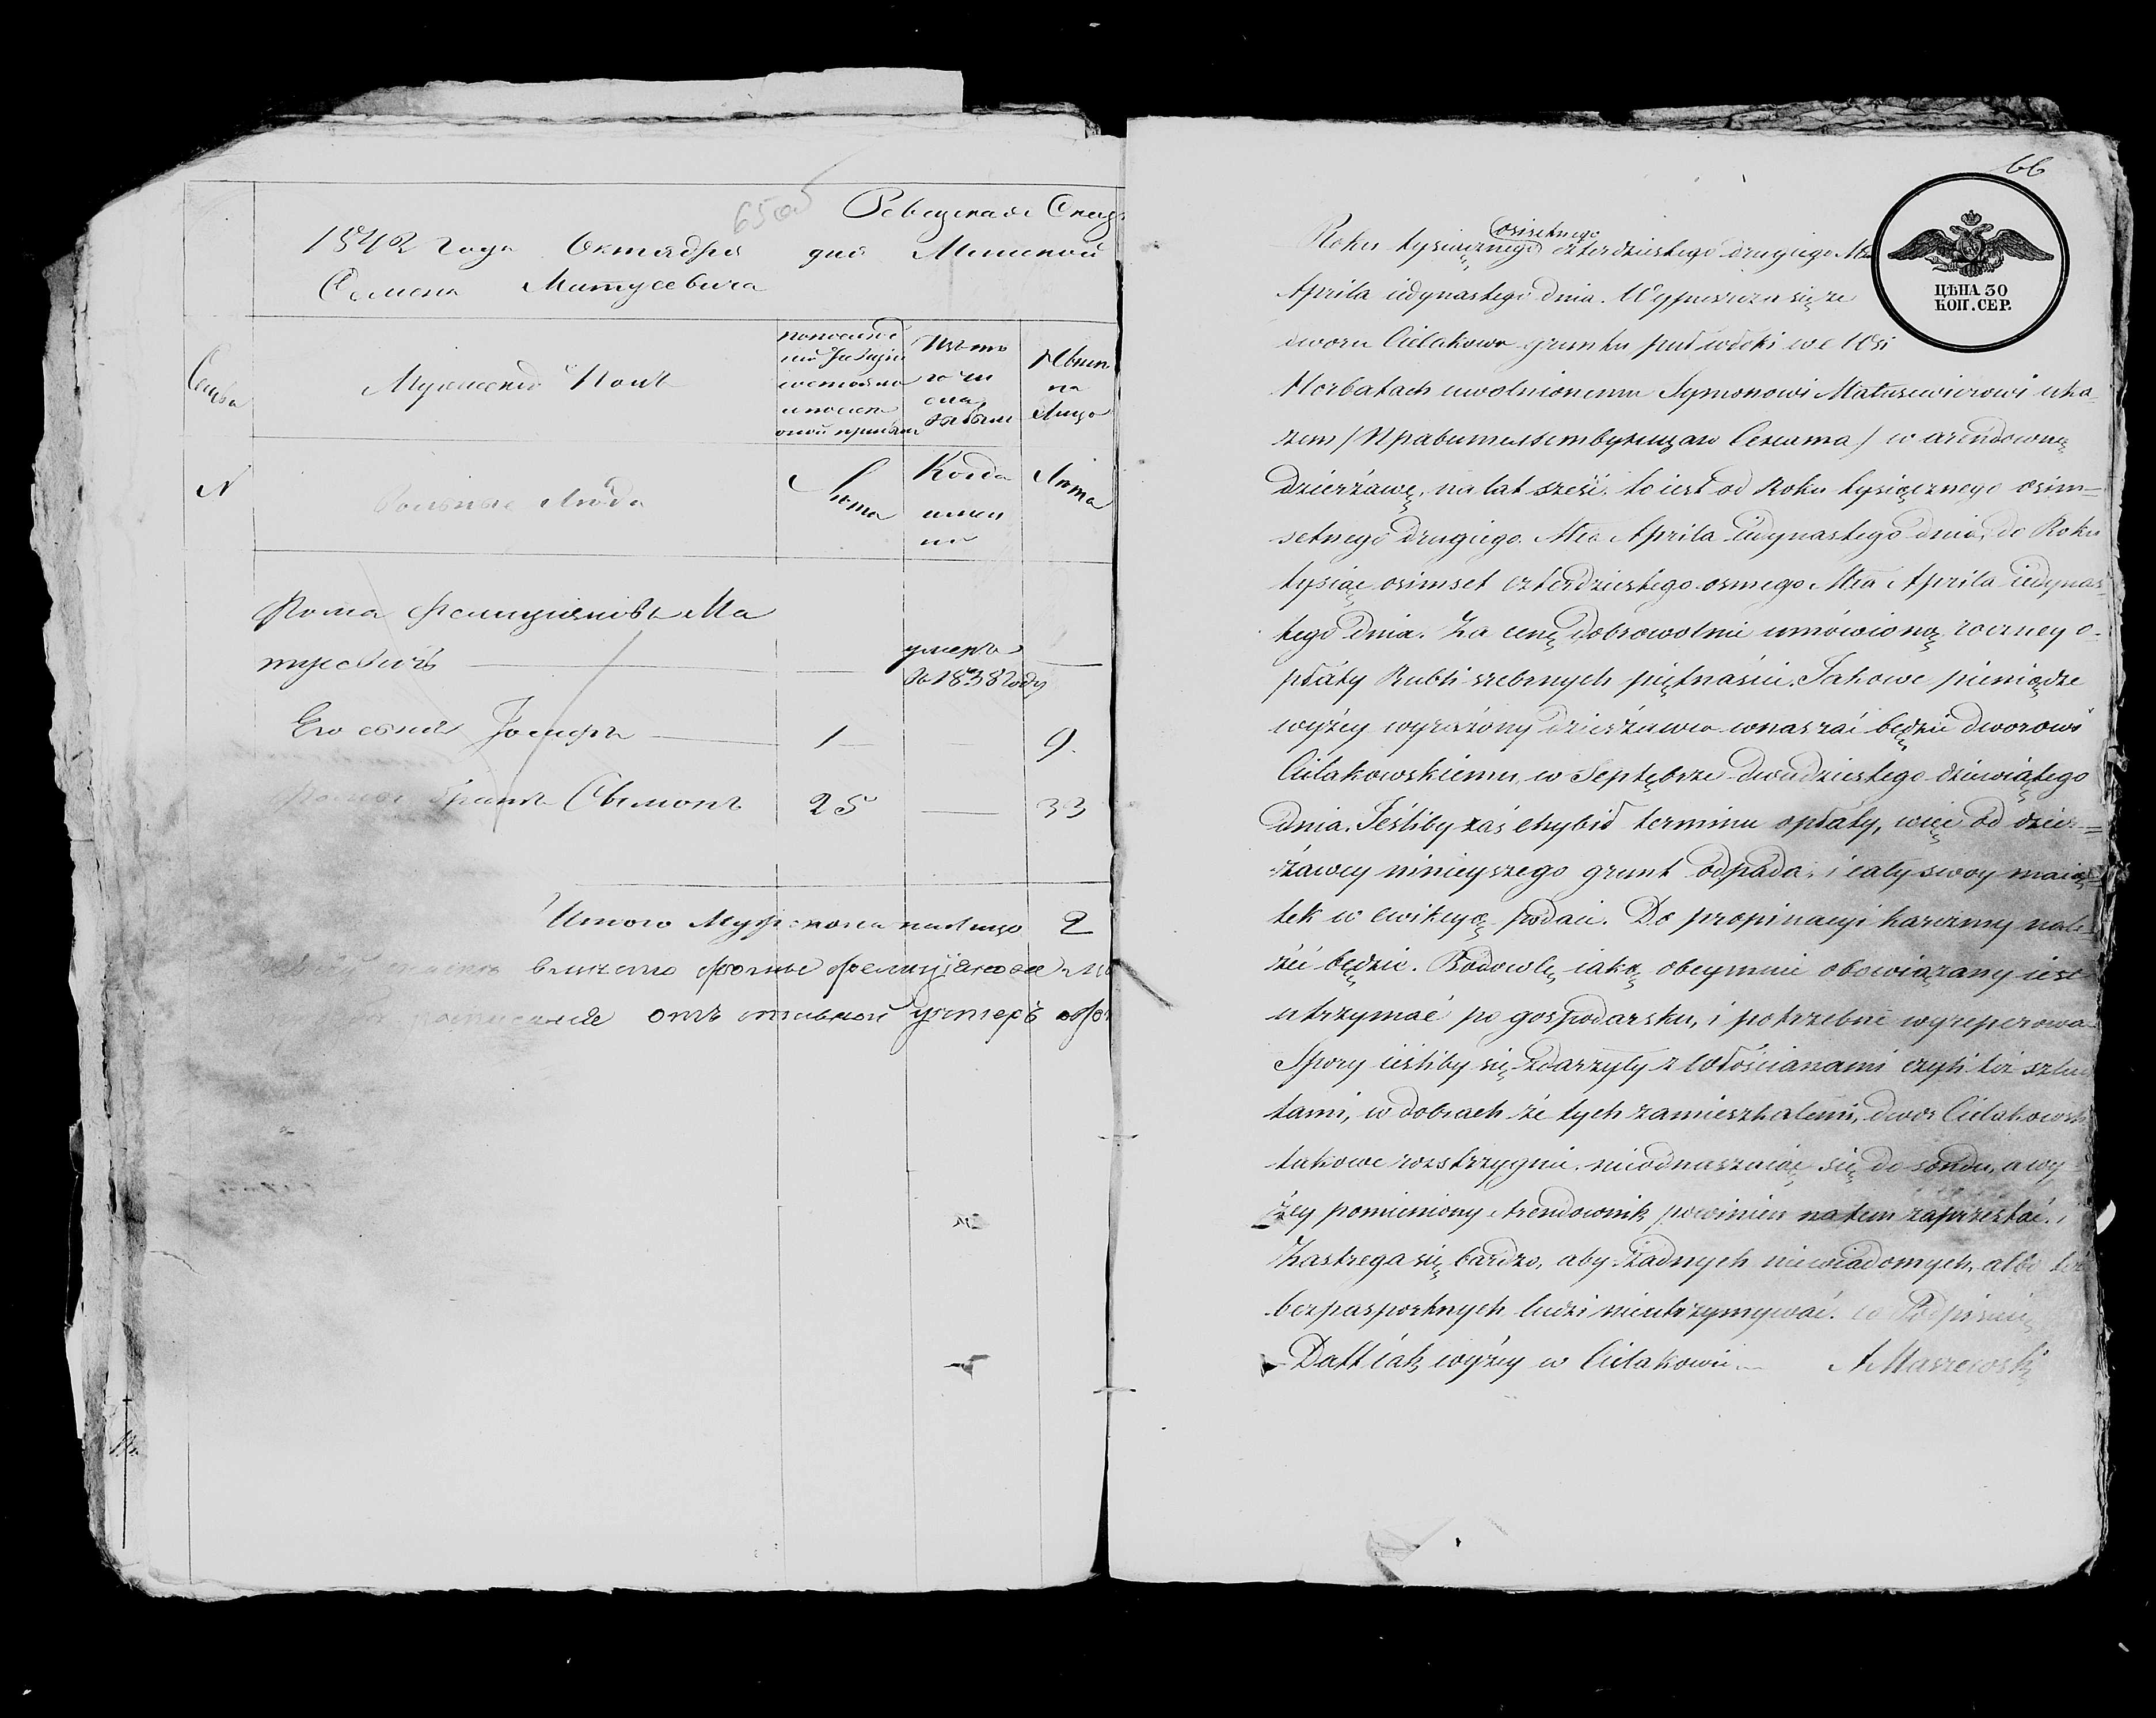 65об
Ревизская
1842 года Октября дня Минской
Семена Матусевича
Семья
Мужеской Полъ
по последней
состояло
Изъ того
числа
выбыло
Нынѣ
на
Лицо
N
Вольные Люди
Лѣта
Когда
имен
но
Лѣта
Фома Фелиціановъ Ма
тусевичъ
умеръ
въ 1838 году
Его сынъ Іосифъ 1 9
братъ Сымонъ 25 33
Итого Мужеска налицо 2
66
ЦѢНА 30
КОП. СЕР.
Roku tysiącznego osimsetnego czterdziestego drugiego Mca
Aprila iedynastego dnia. Wypuszcza się ze
dworu Cielakowa gruntu puł włoki we Wsi
Horbatach uwolnionemu Symonowi Matusewiczowi uka-
zem / Правительствующаго Сената / w arendowną
Dzierżawę, na lat sześć, to iest od Roku tysiącznego osim-
setnego drugiego Mca Aprila iedynastego dnia, do Roku
tysiąc osimset czterdziestego osmego Mca Aprila iedynas-
tego dnia. Za cenę dobrowolnie umówioną roczney o-
płaty Rubli srebrnych piętnaście. Takowe pieniądze
wyżey wyrażony dzierżawca wnaszać będzie dworowi
Cielakowskiemu, w Septębrze dwudziestego dziewiątego
Dnia. Jeśliby zaś chybił terminu opłaty, więc od dzier-
żawcy ninieyszego grunt odpada, i cały swoy maią-
tek w ewikcyą podaie. Do propinacyi karczmy nale-
żeć będzie. Budowlę, iaką obeymie obowiązany iest
utrzymać po gospodarsku, i potrzebnie wyreperowa
Spory ieśliby się zdarzyły z włościanami czyli też szlach
tami, w dobrach że tych zamieszkałemi, dwor Cielakowsk
takowe rozstrzygnie, nieodnaszaiąc się do sondu, a wy
żey pomieniony Arendownik powinien na tem zaprzestać.
Zastrega się bardzo, aby żadnych niewiadomych, albo też
bezpasportnych ludzi nieutrzymywać. co Podpisuię
Datt iak wyżey w Cielakowie A Maszewski